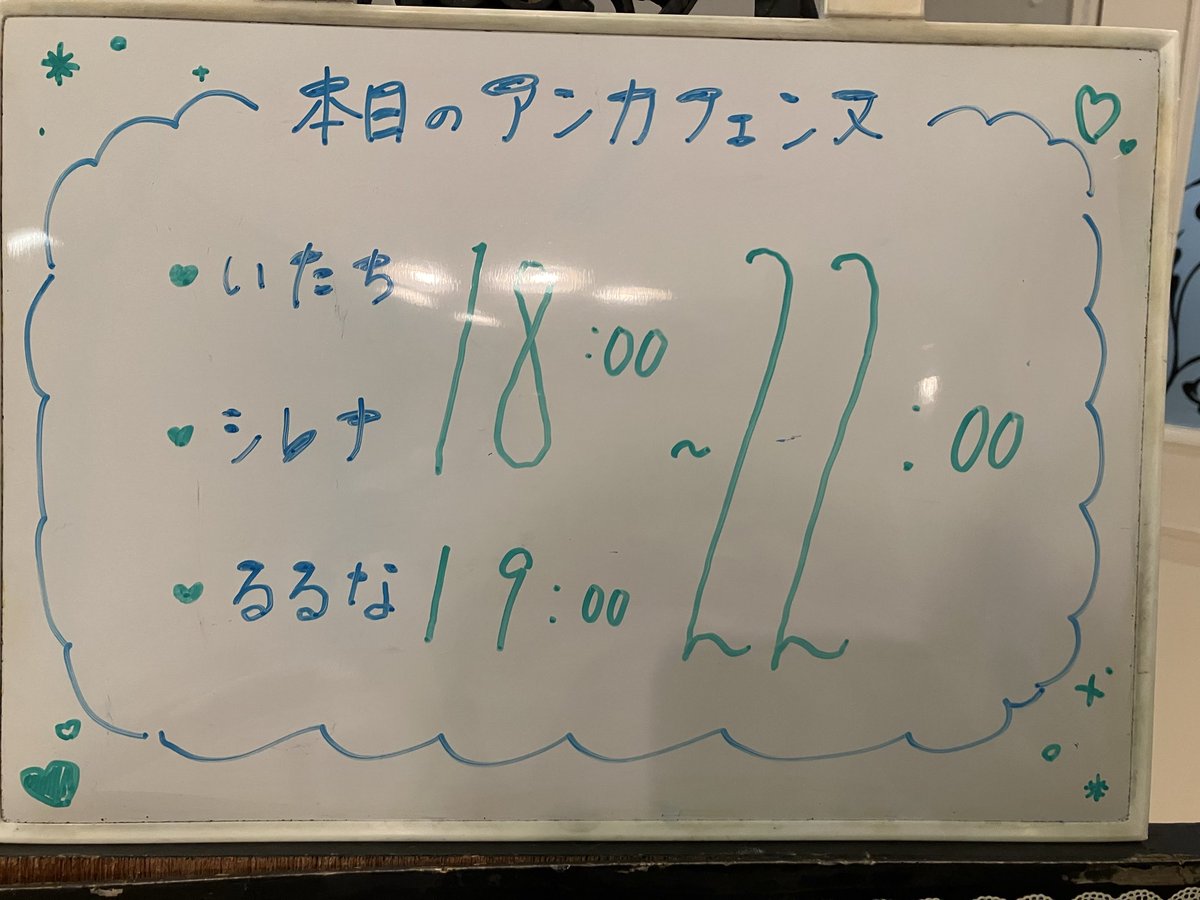 本日のアンカフェンヌ
いたち
シレナ
18:00
~22:00
るるな 19:00